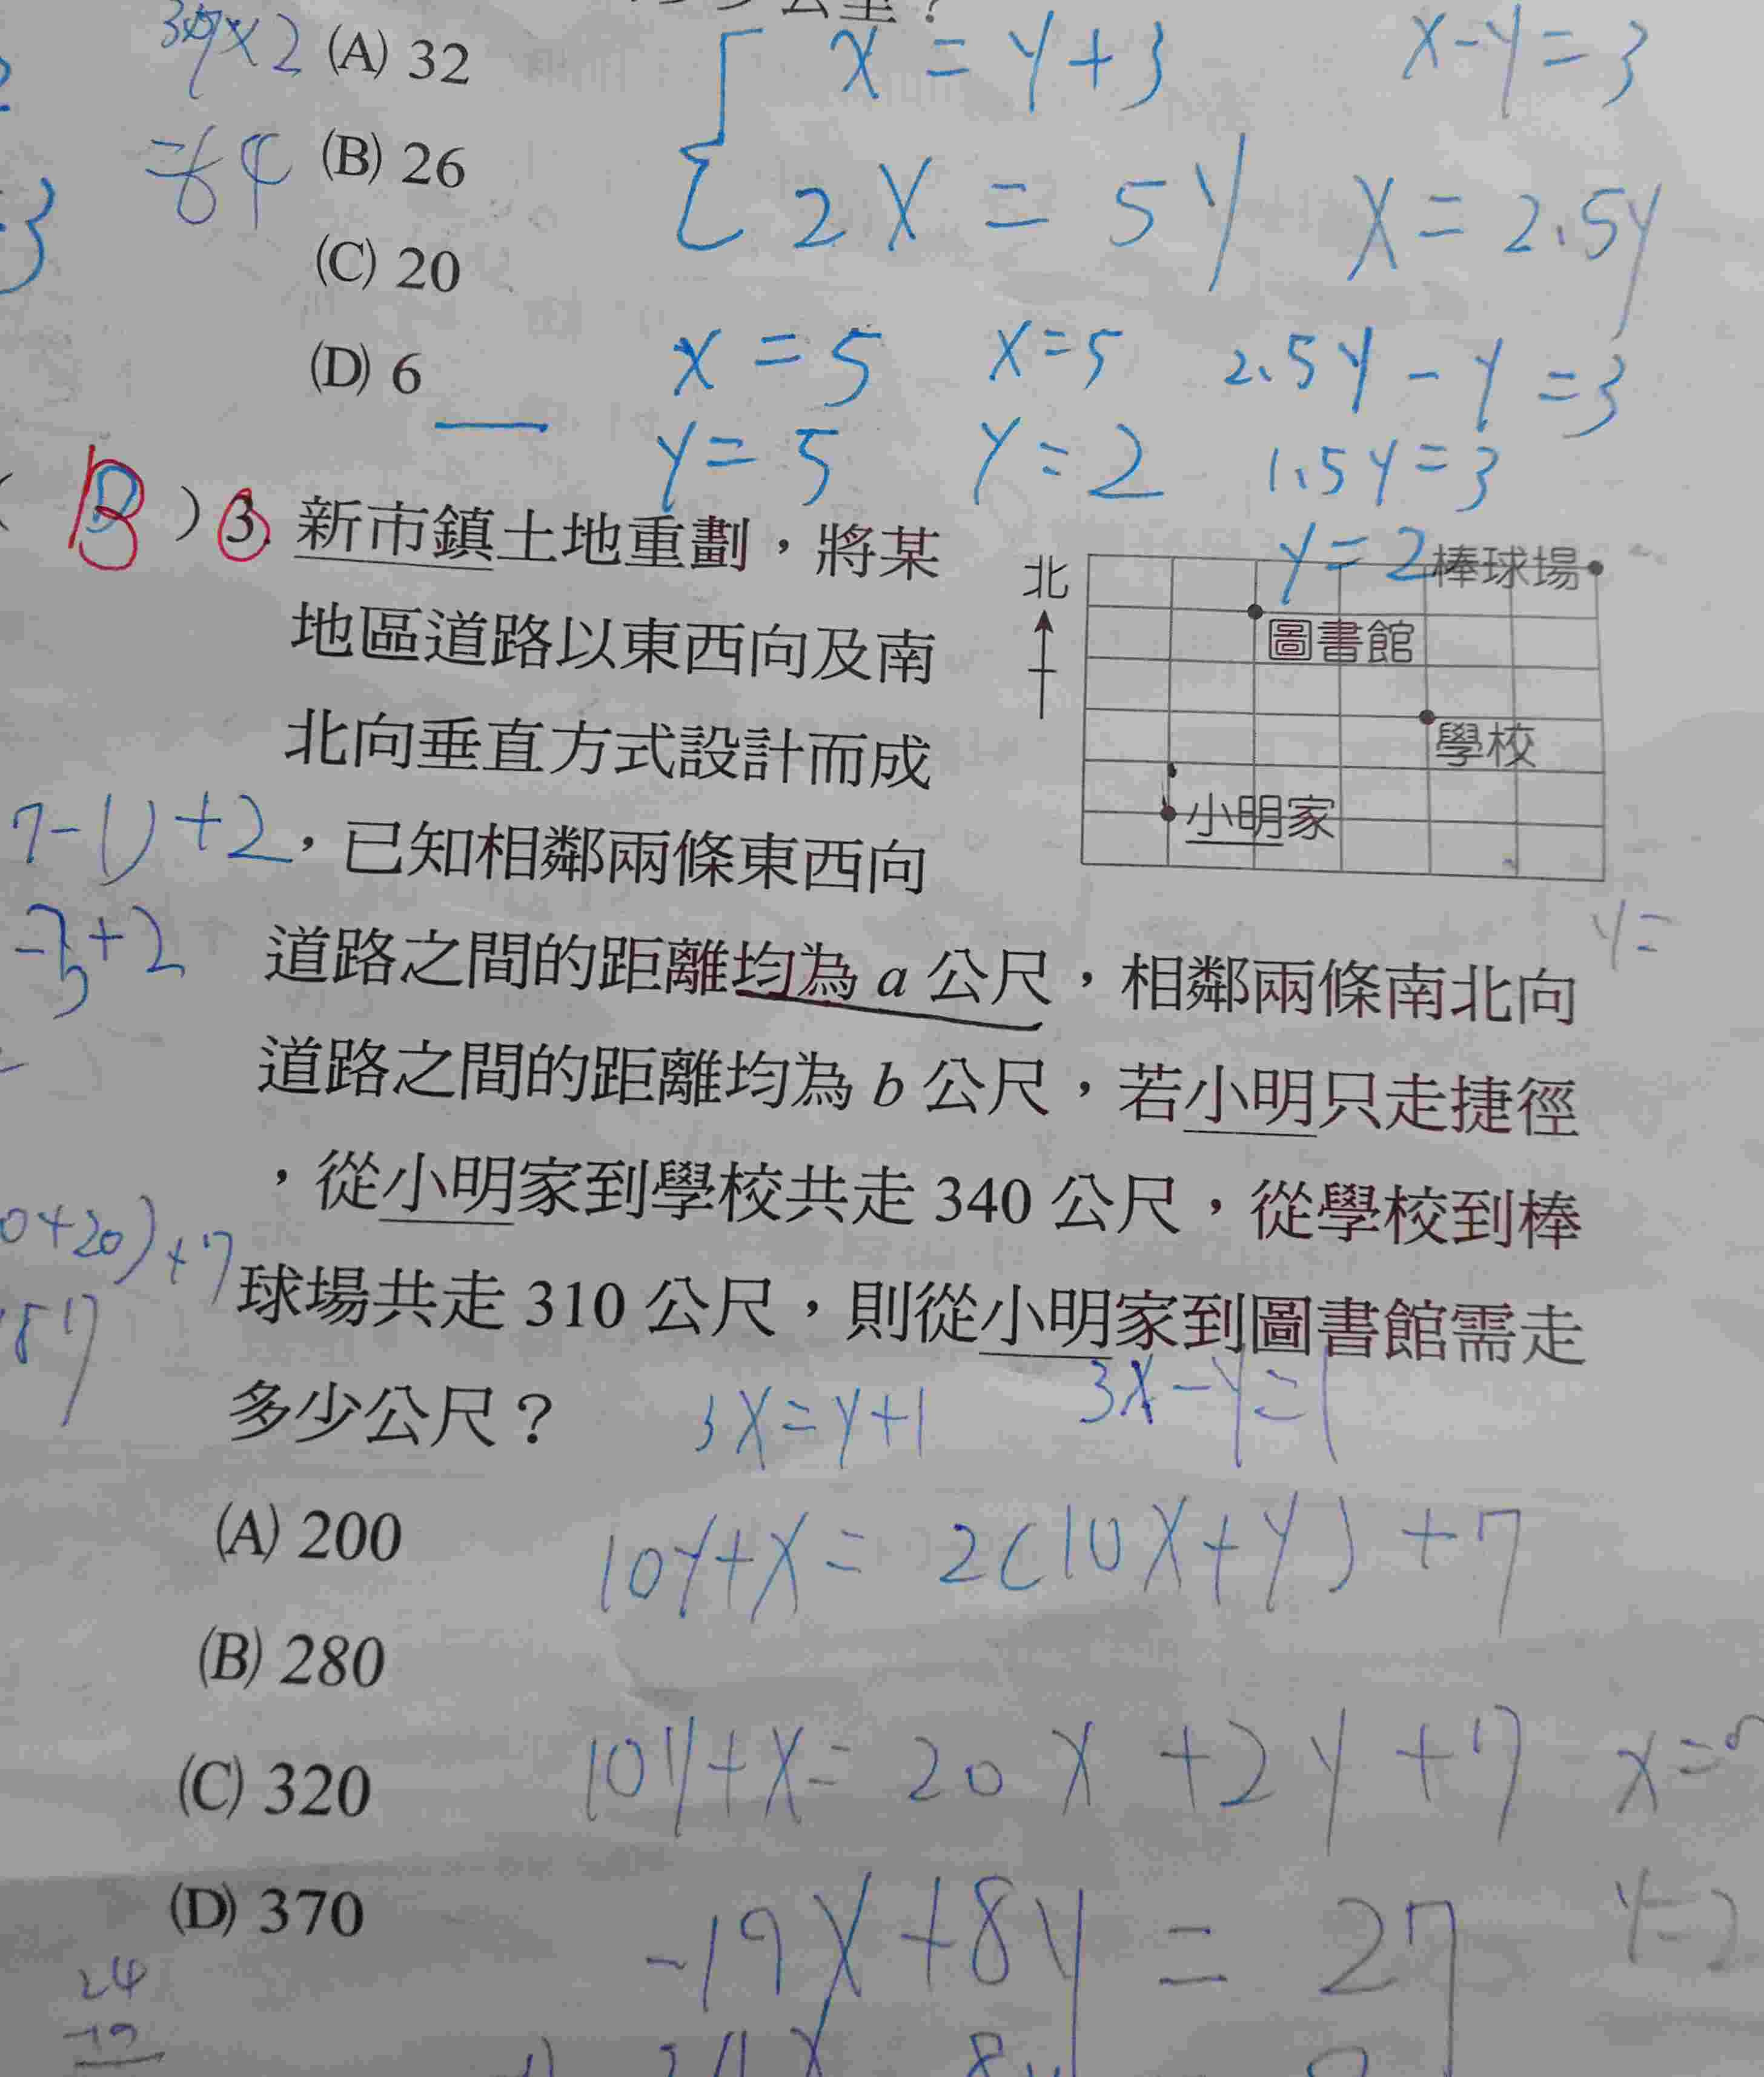 (A) 32
(B) 26
(C) 20
(D) 6
x = y + 3
x - y = 3
2x = 5y
x = 2.5y
x = 5
x = 5
2.5y - y = 3
y = 5
y = 2
1.5y = 3
y = 2
( B ) 3. 新市鎮土地重劃，將某
地區道路以東西向及南
北向垂直方式設計而成
，已知相鄰兩條東西向
道路之間的距離均為 a 公尺，相鄰兩條南北向
道路之間的距離均為 b 公尺，若小明只走捷徑
，從小明家到學校共走 340 公尺，從學校到棒
球場共走 310 公尺，則從小明家到圖書館需走
多少公尺？
北
棒球場
圖書館
學校
小明家
y =
3x = y + 1
3x - y = 1
(A) 200
(B) 280
(C) 320
(D) 370
10y + x = 2(10x + y) + 7
10y + x = 20x + 2y + 7
-19x + 8y = 27
7-1) + 2
0+20) + 7
24
-19